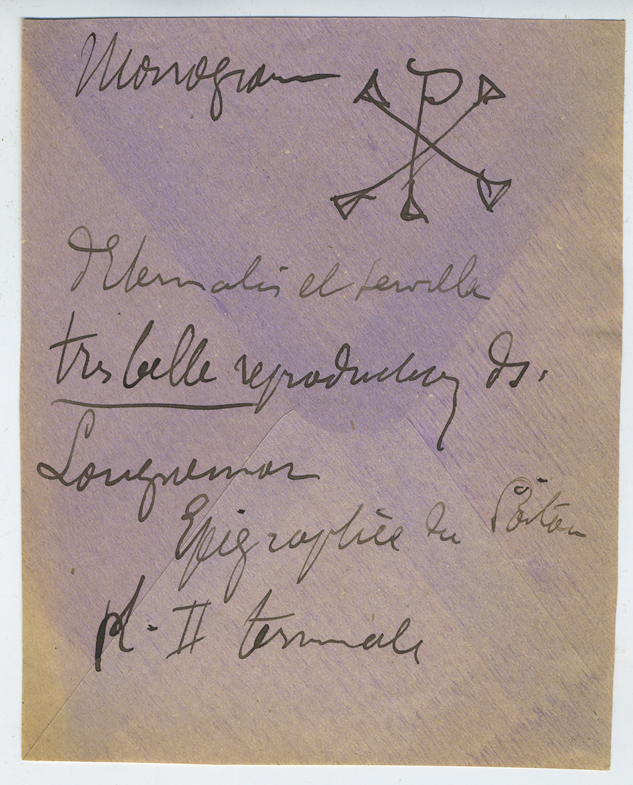 Monogram
d'Eternalis et Servilla
très belle reproduction ds.
Longuemar
Epigraphie du Poitou
pl. II terminale